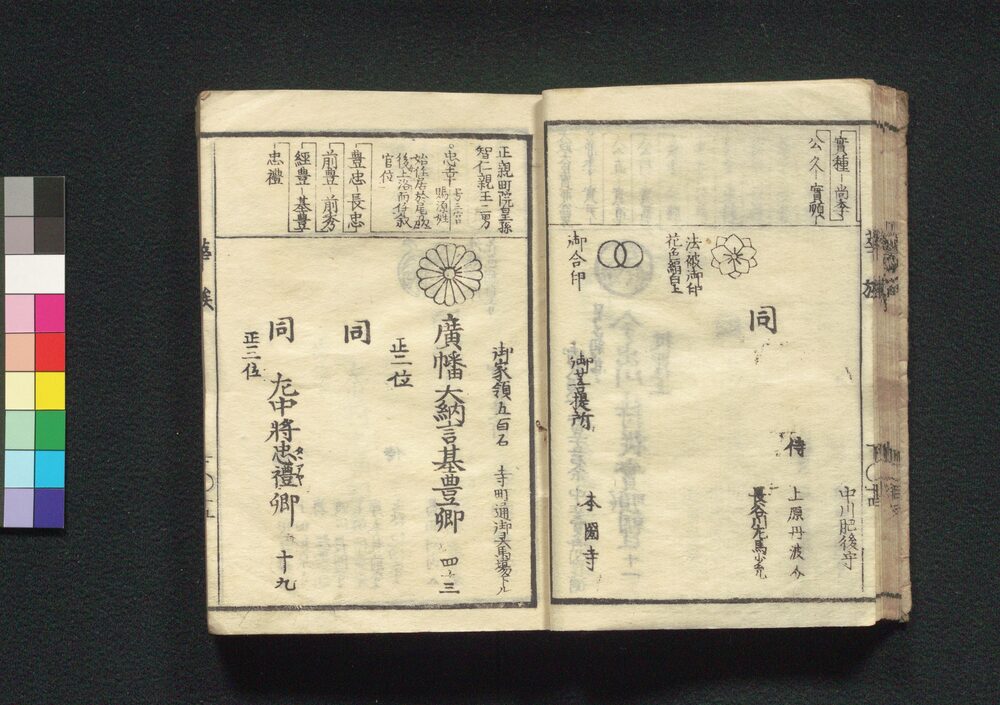 實種 尚季
公久 實順
中川肥後守
侍 上原丹波介
長谷川左馬少允
同
法被御印
花色
御合印
御菩提所 本國寺
華族
正親町院皇孫
智仁親王二男
忠幸 号三宮
賜源姓
始住居於尾
後上洛而
官位
豊忠 長忠
前豊 前秀
經豊 基豊
忠禮
御家領五百石 寺町通御
廣幡大納言基豊卿 四十三
正二位
同
同 左中將忠禮卿 十九
正三位
華族